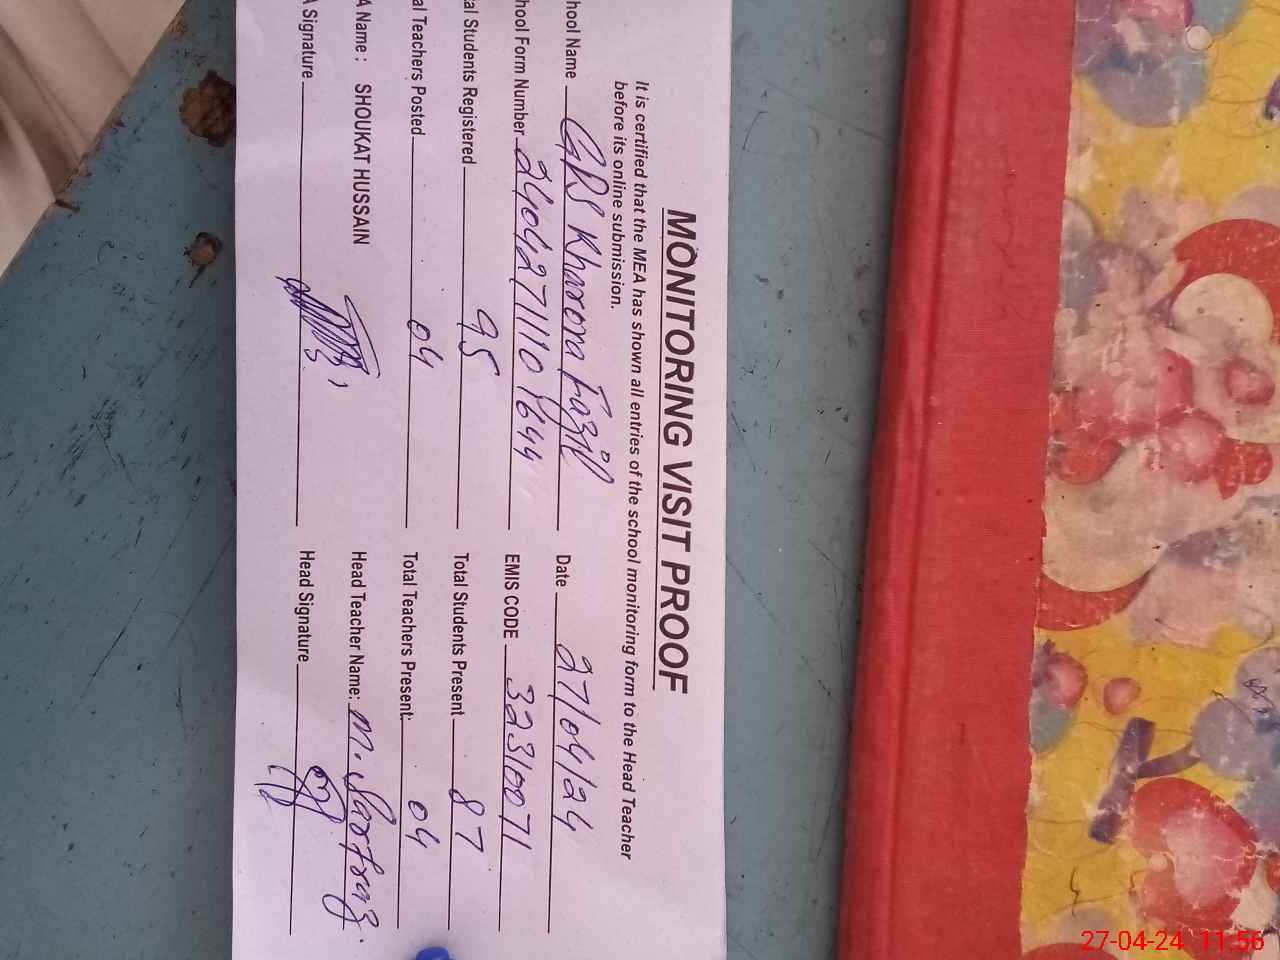 MONITORING VISIT PROOF
It is certified that the MEA has shown all entries of the school monitoring form to the Head Teacher
before its online submission.
hool Name GPS Kharora Fazil Date 27/04/24
hool Form Number 24042711101644 EMIS CODE 32310071
al Students Registered 95 Total Students Present 87
al Teachers Posted 04 Total Teachers Present: 04
A Name : SHOUKAT HUSSAIN Head Teacher Name: M. Sarfraz
A Signature Head Signature
27-04-24 11:56